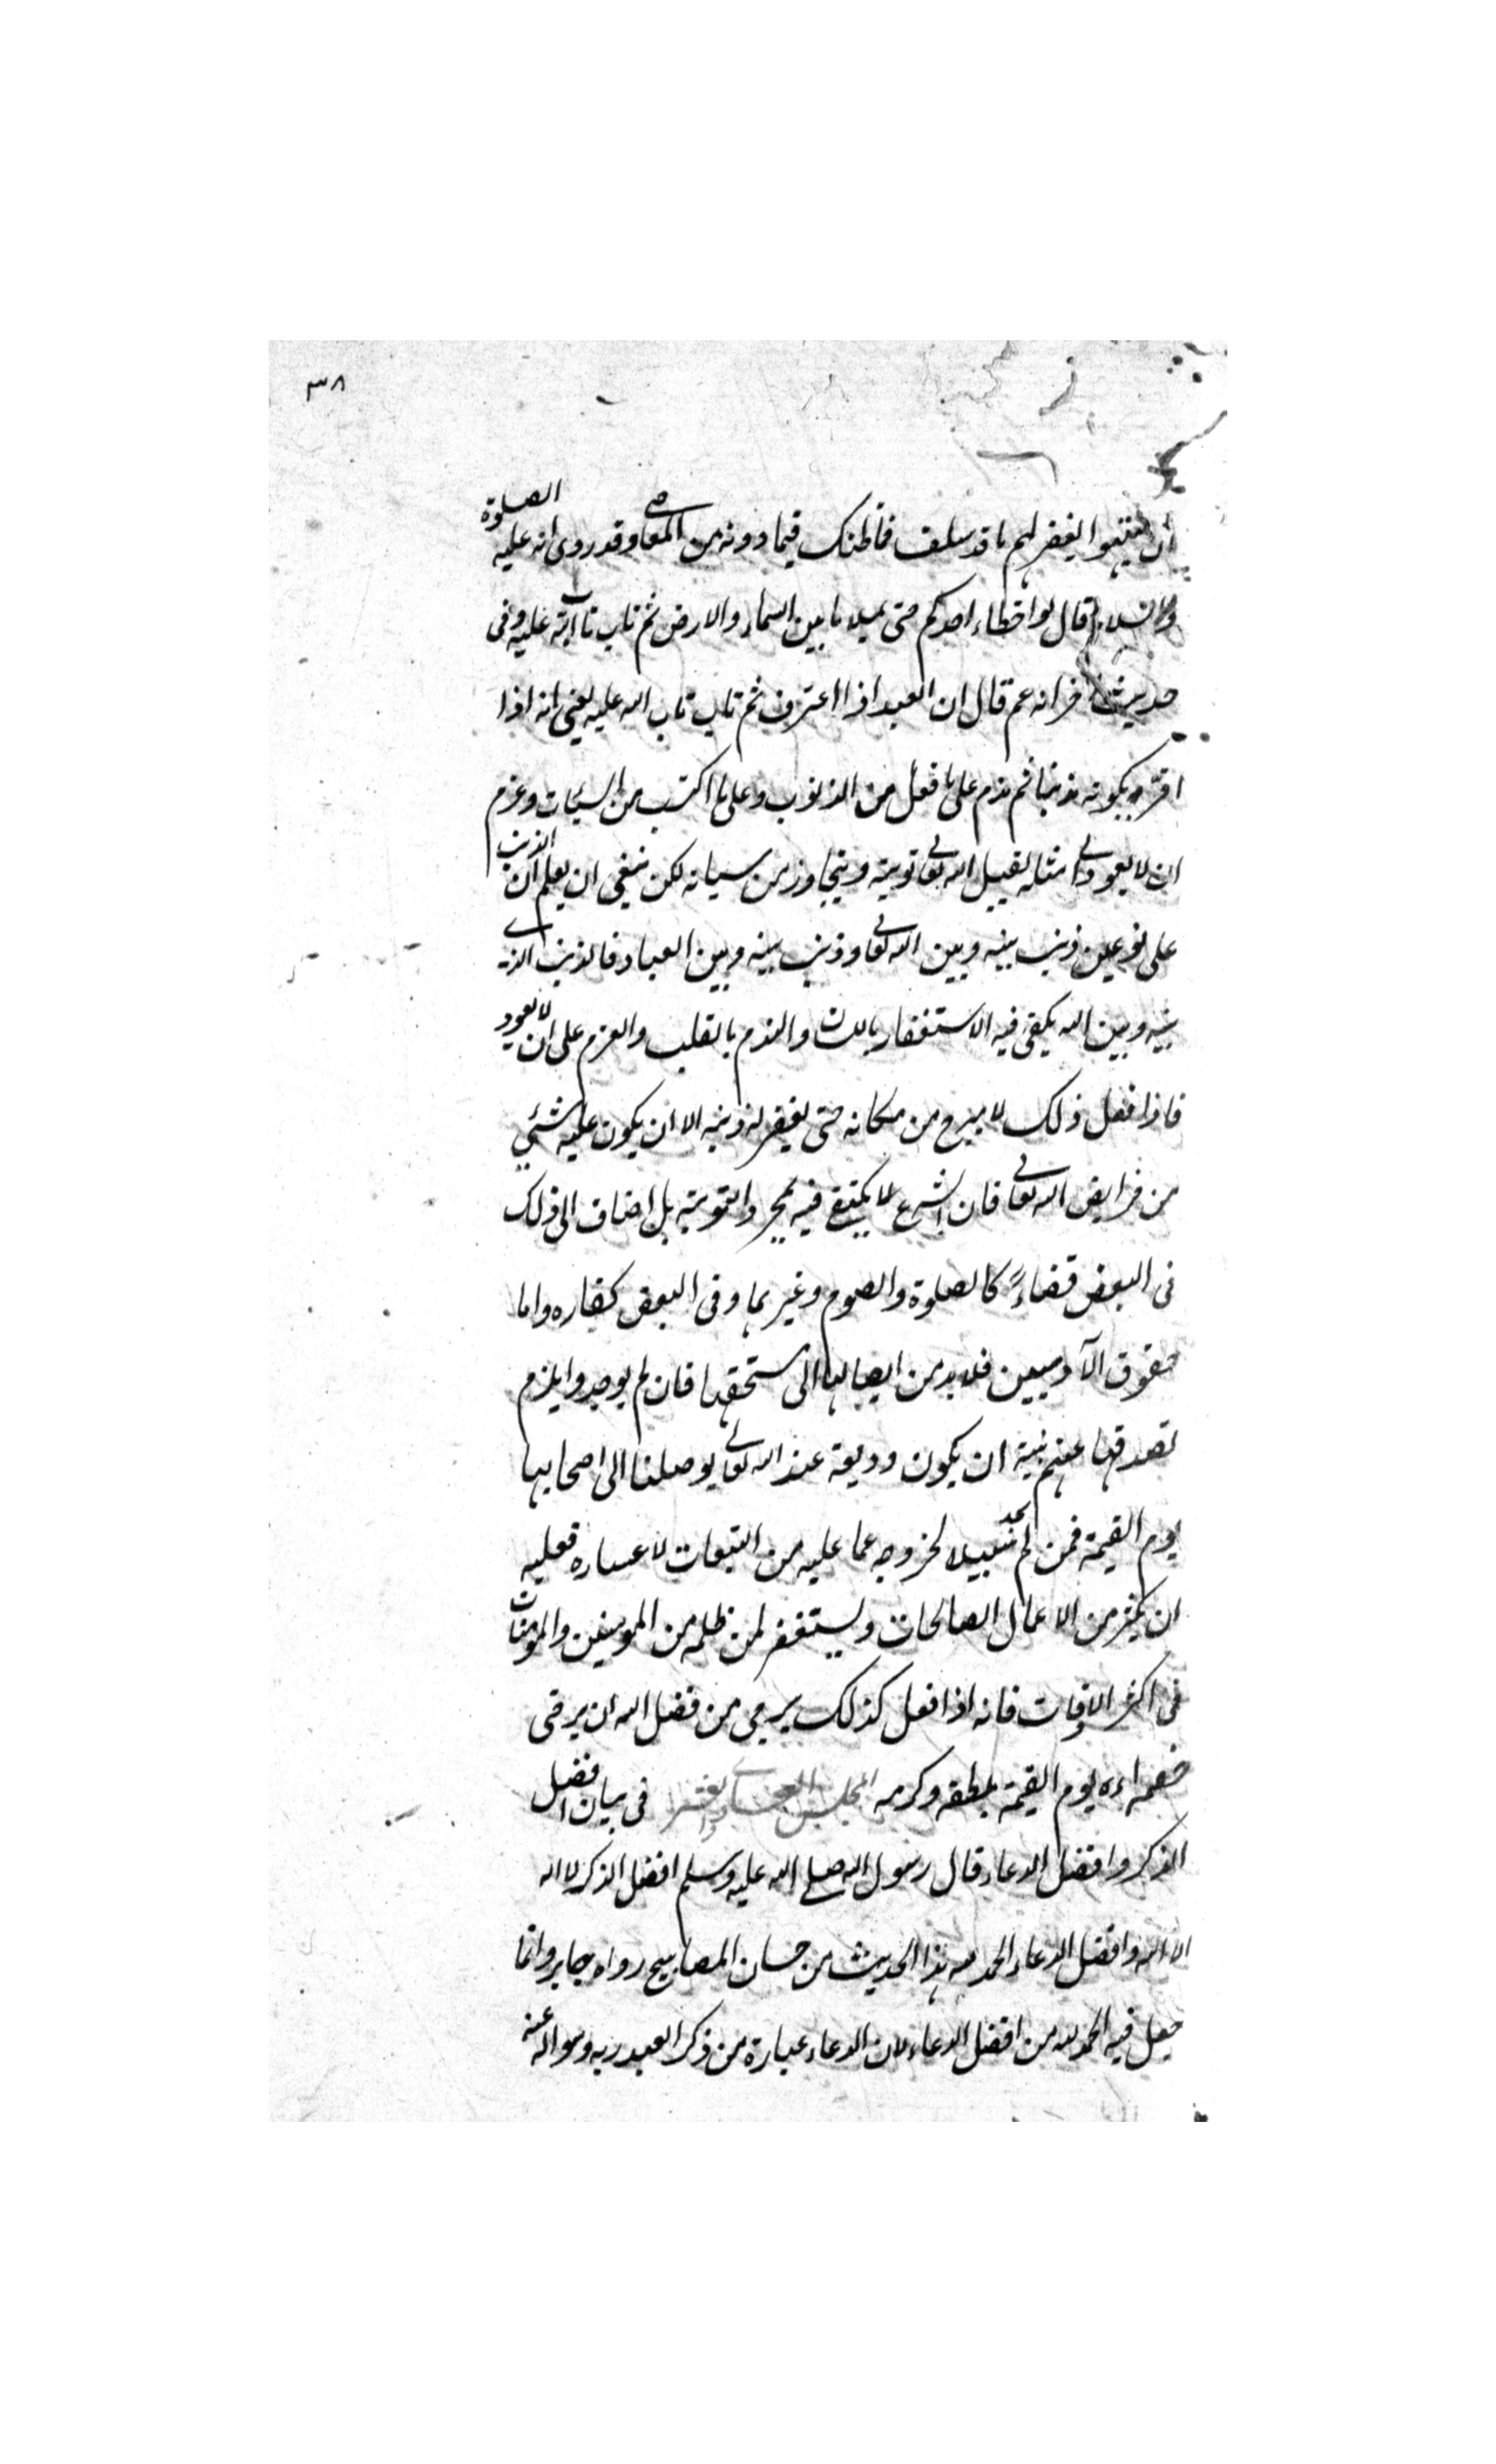 ٣٨
ان ينتهوا يغفر لهم ما قد سلف فما ظنك فيما دونه من المعاصى وقد روى انه عليه الصلوة
والسلام قال لو اخطاء احدكم حتى يملا ما بين السماء والارض ثم تاب تاب الله عليه وفى
حديث اخر انه عم قال ان العبد اذا اعترف ثم تاب تاب الله عليه يعنى انه اذا
اقر بكونه مذنبا ثم ندم على ما فعل من الذنوب وعلى ما اكتسب من السيئات وعزم
ان لا يعود الى مثاله يقبل الله تعالى توبته ويتجاوز من سياته لكن ينبغى ان يعلم ان الذنب
على نوعين ذنب بينه وبين الله تعالى وذنب بينه وبين العباد فالذنب الذى
بينه وبين الله يكفى فيه الاستغفار باللسان والندم بالقلب والعزم على ان لا يعود
فاذا فعل ذلك لا يبرح من مكانه حتى يغفر له ذنبه الا ان يكون عليه شئ
من فرايض الله تعالى فان الشرع لا يكتفى فيه بمجرد التوبة بل اضاف الى ذلك
فى البعض قضاءً كالصلوة والصوم وغيرهما وفى البعض كفاره واما
حقوق الآدميين فلا بد من ايصالها الى مستحقها فان لم يوجدوا يلزم
تصدقها عنهم بنية ان يكون وديعة عند الله تعالى يوصلها الى اصحابها
يوم القيمة فمن لم يجد سبيلا لخروجه عما عليه من التبعات لاعساره فعليه
ان يكثر من الاعمال الصالحات ويستغفر لمن ظلمه من المومنين والمومنات
فى اكثر الاوقات فانه اذا فعل كذلك يرجى من فضل الله ان يرضى
خصماءه يوم القيمة بلطفه وكرمه المجلس الحادى والعشر فى بيان افضل
الذكر وافضل الدعاء قال رسول الله صلى الله عليه وسلم افضل الذكر لا اله
الا الله وافضل الدعاء الحمد لله هذا الحديث من حسان المصابيح رواه جابر وانما
جعل فيه الحمد لله من افضل الدعاء لان الدعاء عبارة من ذكر العبد ربه وسواله عنه